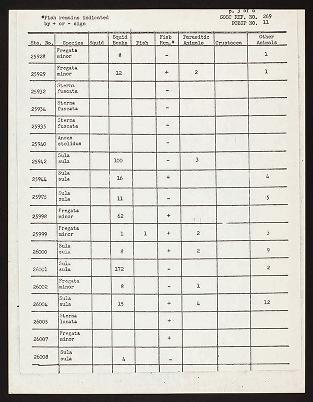 p. 3 of 6
*Fish remains indicated GOCC REF. NO. 269
by + or - sign POBSP NO. 11
Squid Fish Parasitic Other
Sta. No. Species Squid Beaks Fish Rem.* Animals Crustacea Animals
25928 Fregata minor 8 - 1
25929 Fregata minor 12 + 2 1
25932 Sterna fuscata -
25934 Sterna fuscata -
25935 Sterna fuscata -
25940 Anous stolidus -
25942 Sula sula 100 - 3
25944 Sula sula 16 + 4
25975 Sula sula 11 - 5
25998 Fregata minor 62 +
25999 Fregata minor 1 1 + 2 3
26000 Sula sula 8 + 2 9
26001 Sula sula 172 - 2
26002 Fregata minor 8 - 1
26004 Sula sula 15 + 4 12
26005 Sterna lunata +
26007 Fregata minor +
26008 Sula sula 4 -